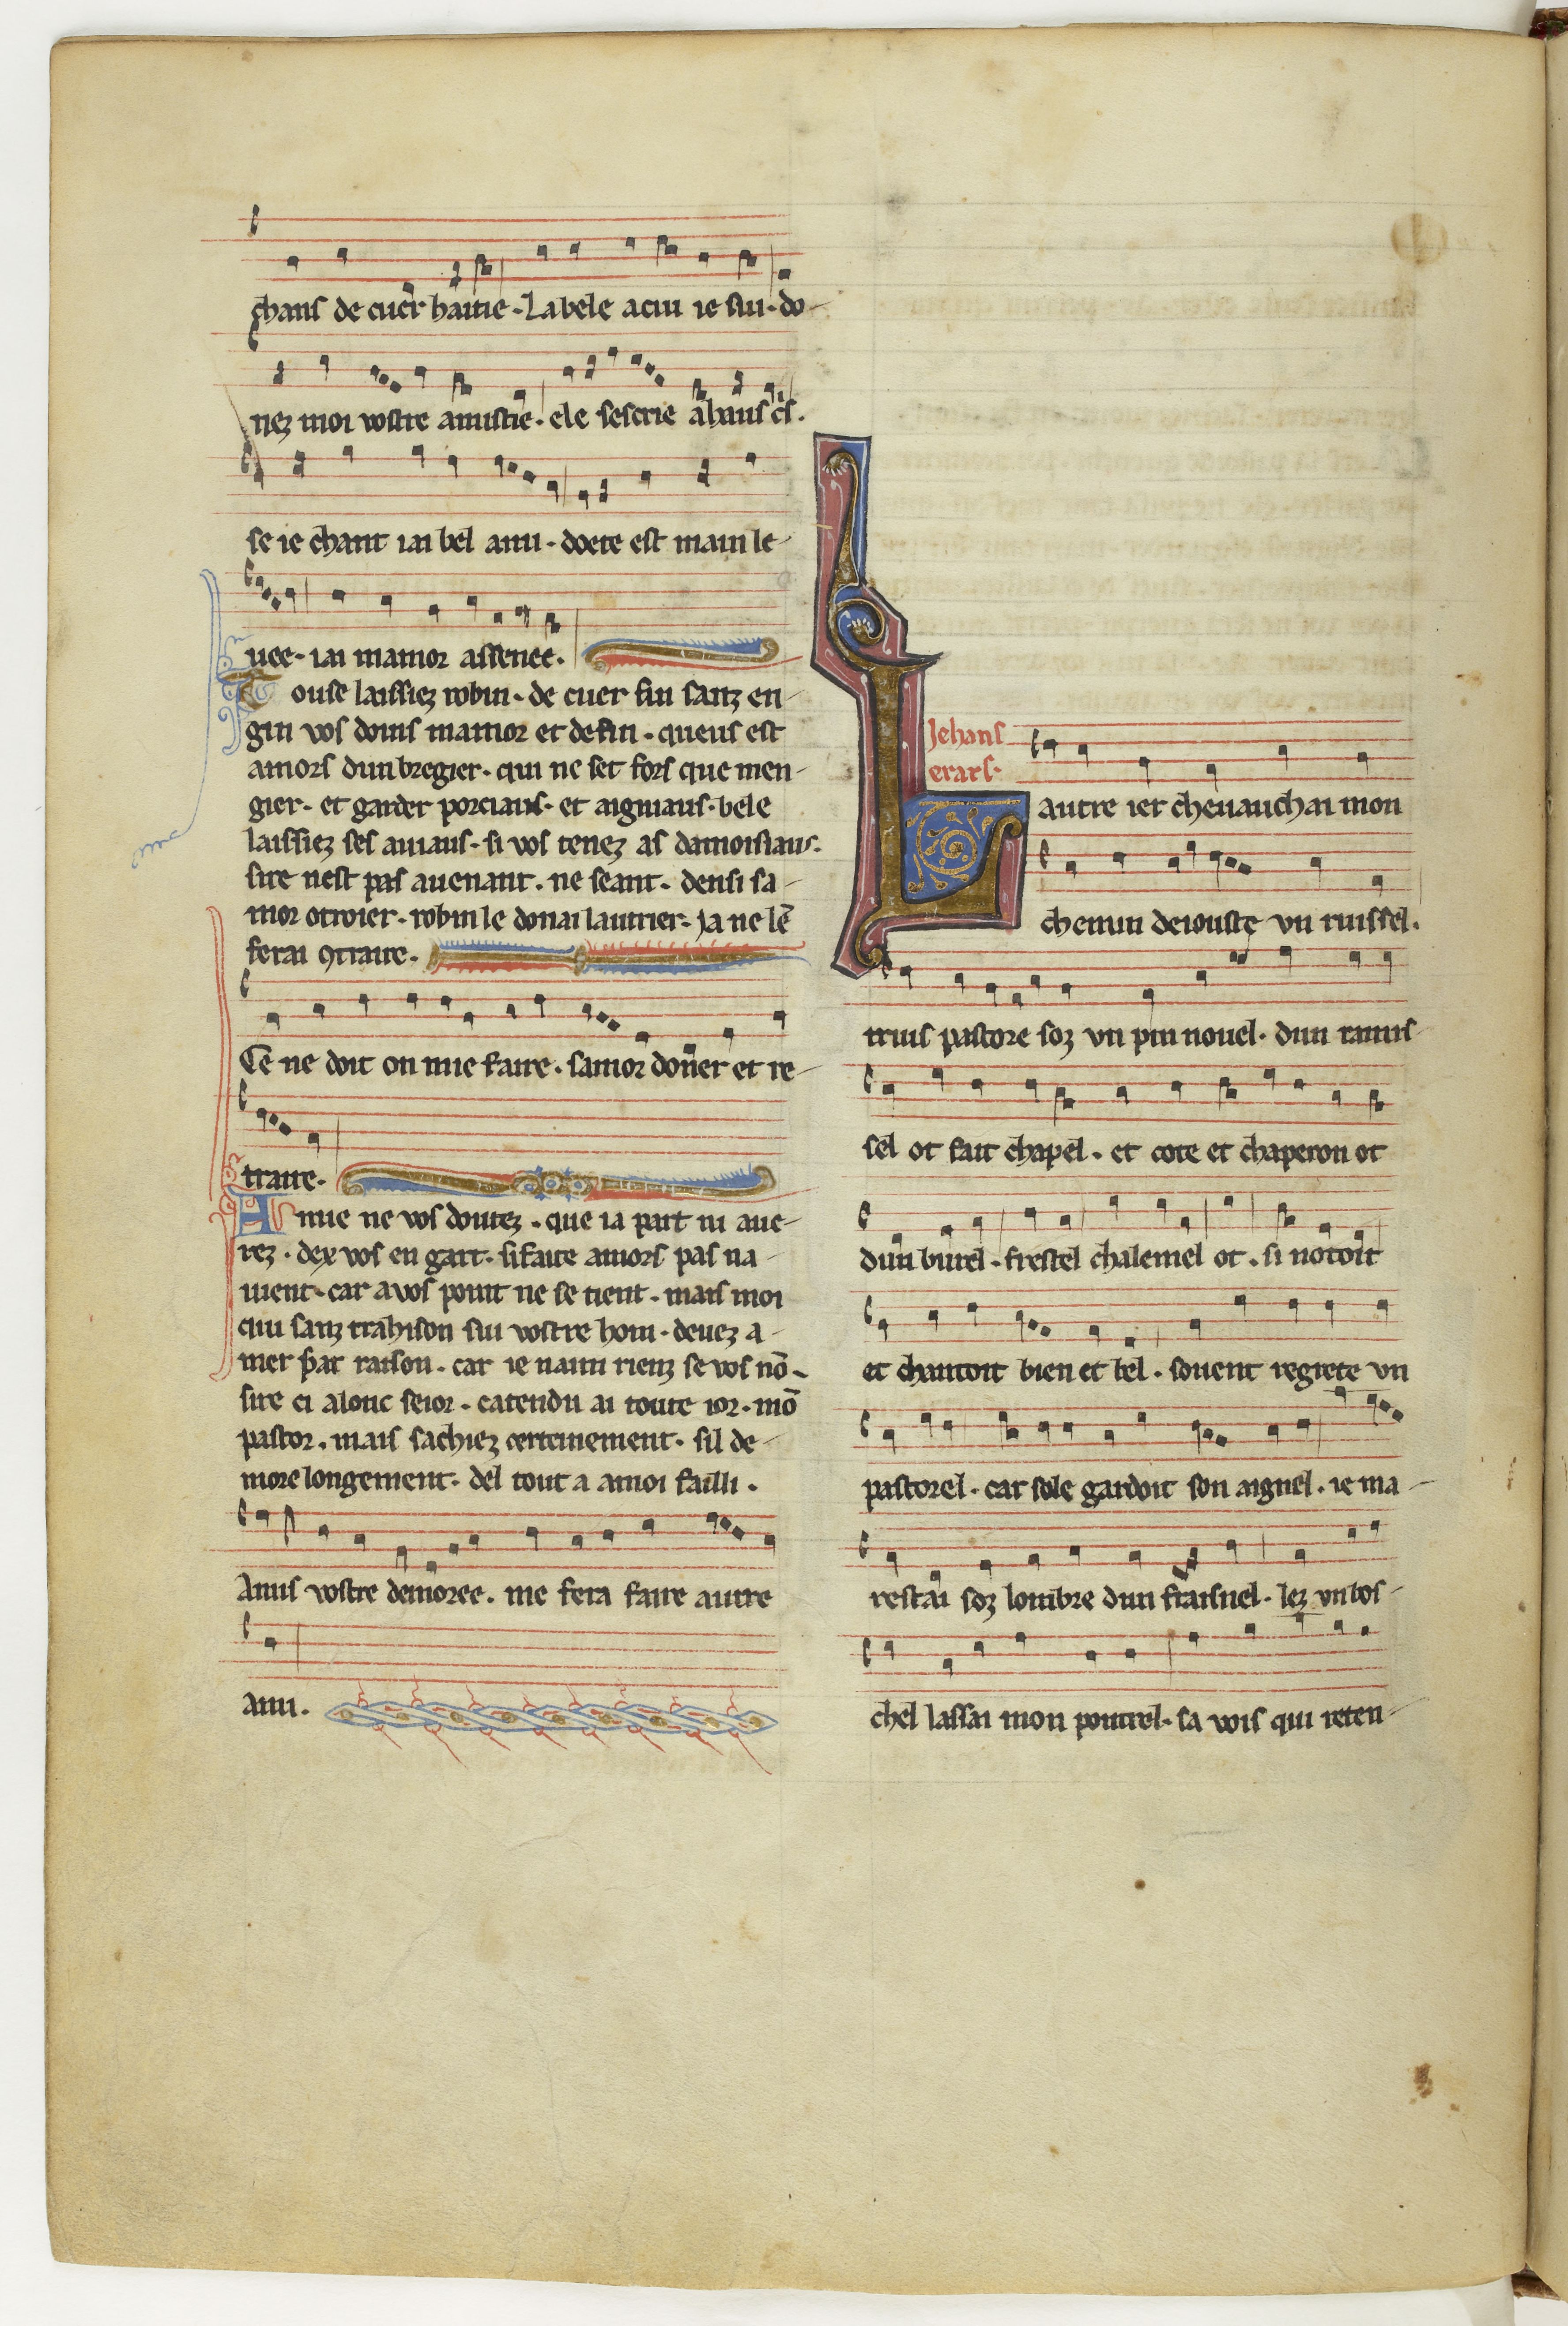 chans de cuer haitie. La bele a cui ie sui. do-
nez moi vostre amistie. ele sescrie a haus cris.
se ie chant iai bel ami. doete est main le-
uee. iai mamor assenee.
Touse laissiez robin. de cuer fin sanz en-
gin vos doins mamor et defin. queus est
amors dun bregier. qui ne set fors que men-
gier. et garder porciaus. et aigniaus. bele
laissiez ses auiaus. si vos tenez as damoisiaus.
sire nest pas auenant. ne seant. densi sa-
mor otroier. robin le donai lautrier. ja ne lē
ferai ꝯtraire.
Ce ne doit on mie faire. samor doner et re-
traire.
Amie ne vos doutez. que ia part ni aue-
rez. dex vos en gart. si faite amors pas na-
uient. car a vos point ne se tient. mais moi
qui sanz trahison sui vostre hom. deuez a-
mer par raison. car ie naim rienz se vos nō.
sire ci alonc seior. catendu ai toute ior. mō
pastor. mais sachiez certeinement. sil de-
more longement. del tout a a moi failli.
Amis vostre demoree. me fera faire autre
ami.
Jehans
erars.
Lautre ier cheuauchai mon
chemin deiouste vn ruissel.
truis pastore soz vn pin nouel. dun ramis-
sel ot fait chapel. et cote et chaperon ot
dun burel. frestel chalemel ot. si notoit
et chantoit bien et bel. souent regrete vn
pastorel. car sole gardoit son aignel. ie ma-
restai soz lombre dun fraisnel. lez vn bos-
chel lassai mon poutrel. sa vois qui reten-